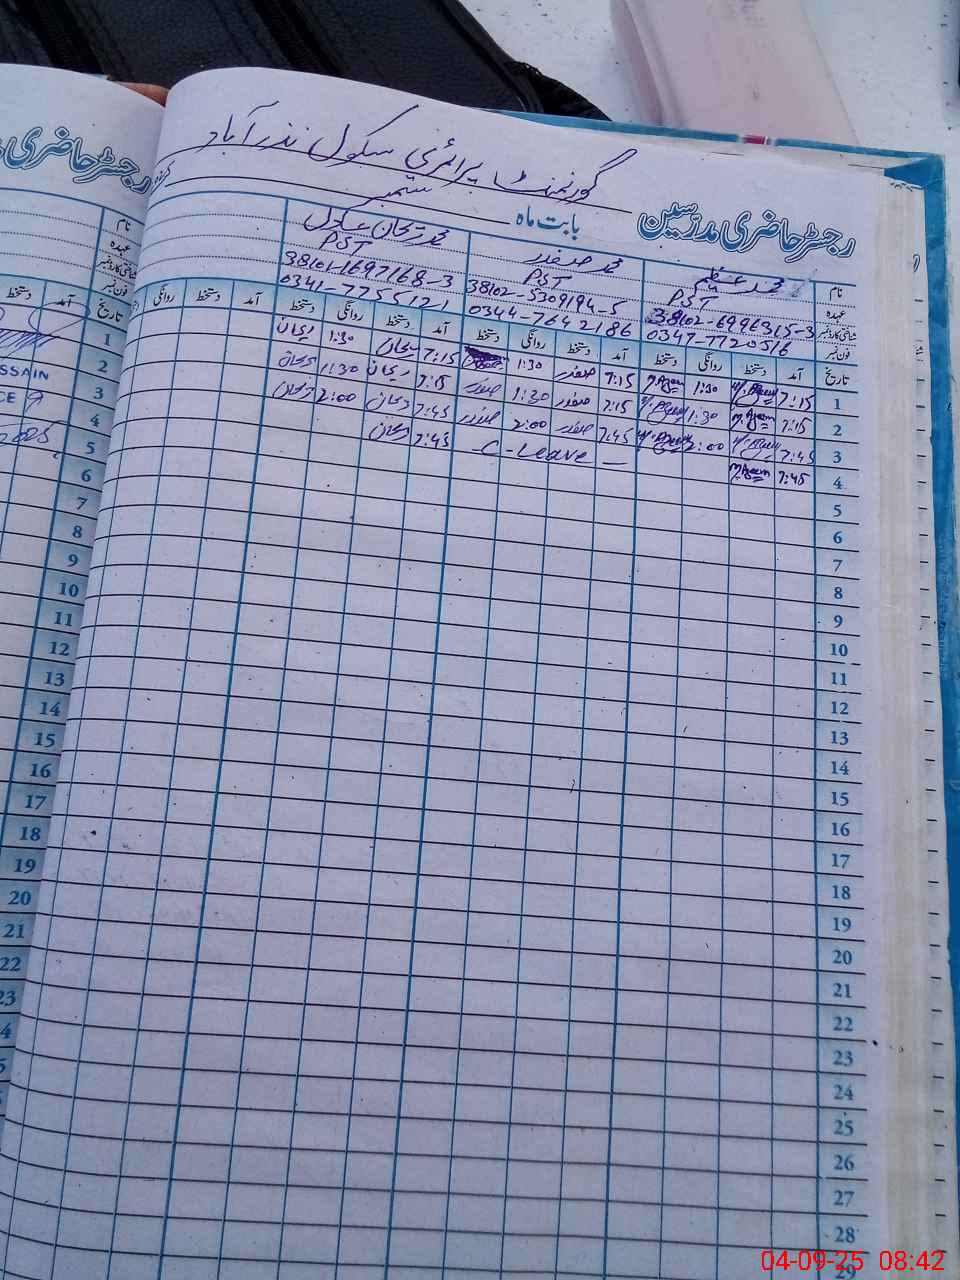 گورنمنٹ پرائمری سکول نذر آباد
رجسٹر حاضری مدرسین بابت ماہ ستمبر
نام محمد عظیم محمد صفدر محمد ریحان
عہدہ PST PST PST
شناختی کارڈ نمبر 38102-6996315-3 38102-5309194-5 38101-1697168-3
فون نمبر 0347-7720516 0344-7642186 0341-7755121
تاریخ آمد دستخط روانگی دستخط آمد دستخط روانگی دستخط آمد دستخط روانگی دستخط آمد دستخط روانگی
1 7:15 M.Azeem 1:30 M.Azeem 7:15 صفدر 1:30 7:15 ریحان 1:30 ریحان
2 7:15 M.Azeem 1:30 M.Azeem 7:15 صفدر 1:30 صفدر 7:15 ریحان 1:30 ریحان
3 7:45 M.Azeem 2:00 M.Azeem 7:45 صفدر 2:00 صفدر 7:45 ریحان 2:00 ریحان
4 7:45 M.Azeem - C-Leave - 7:45 ریحان
5
6
7
8
9
10
11
12
13
14
15
16
17
18
19
20
21
22
23
24
25
26
27
28
29
رجسٹر حاضری
نام
عہدہ
شناختی کارڈ نمبر
فون نمبر
تاریخ آمد دستخط
1
2
SSAIN
3
CE
4
5
6
7
8
9
10
11
12
13
14
15
16
17
18
19
20
21
22
23
04-09-25 08:42